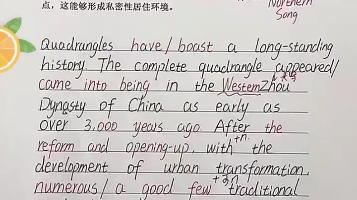 Northern
Song
点，这能够形成私密性居住环境。
Quadrangles have/boast a long-standing
history. The complete quadrangle appeared/
came into being in the Western Zhou
Dynasty of China as early as
over 3,000 years ago. After the
reform and opening-up, with the
+n.
development of urban transformation,
numerous/ a good few traditional